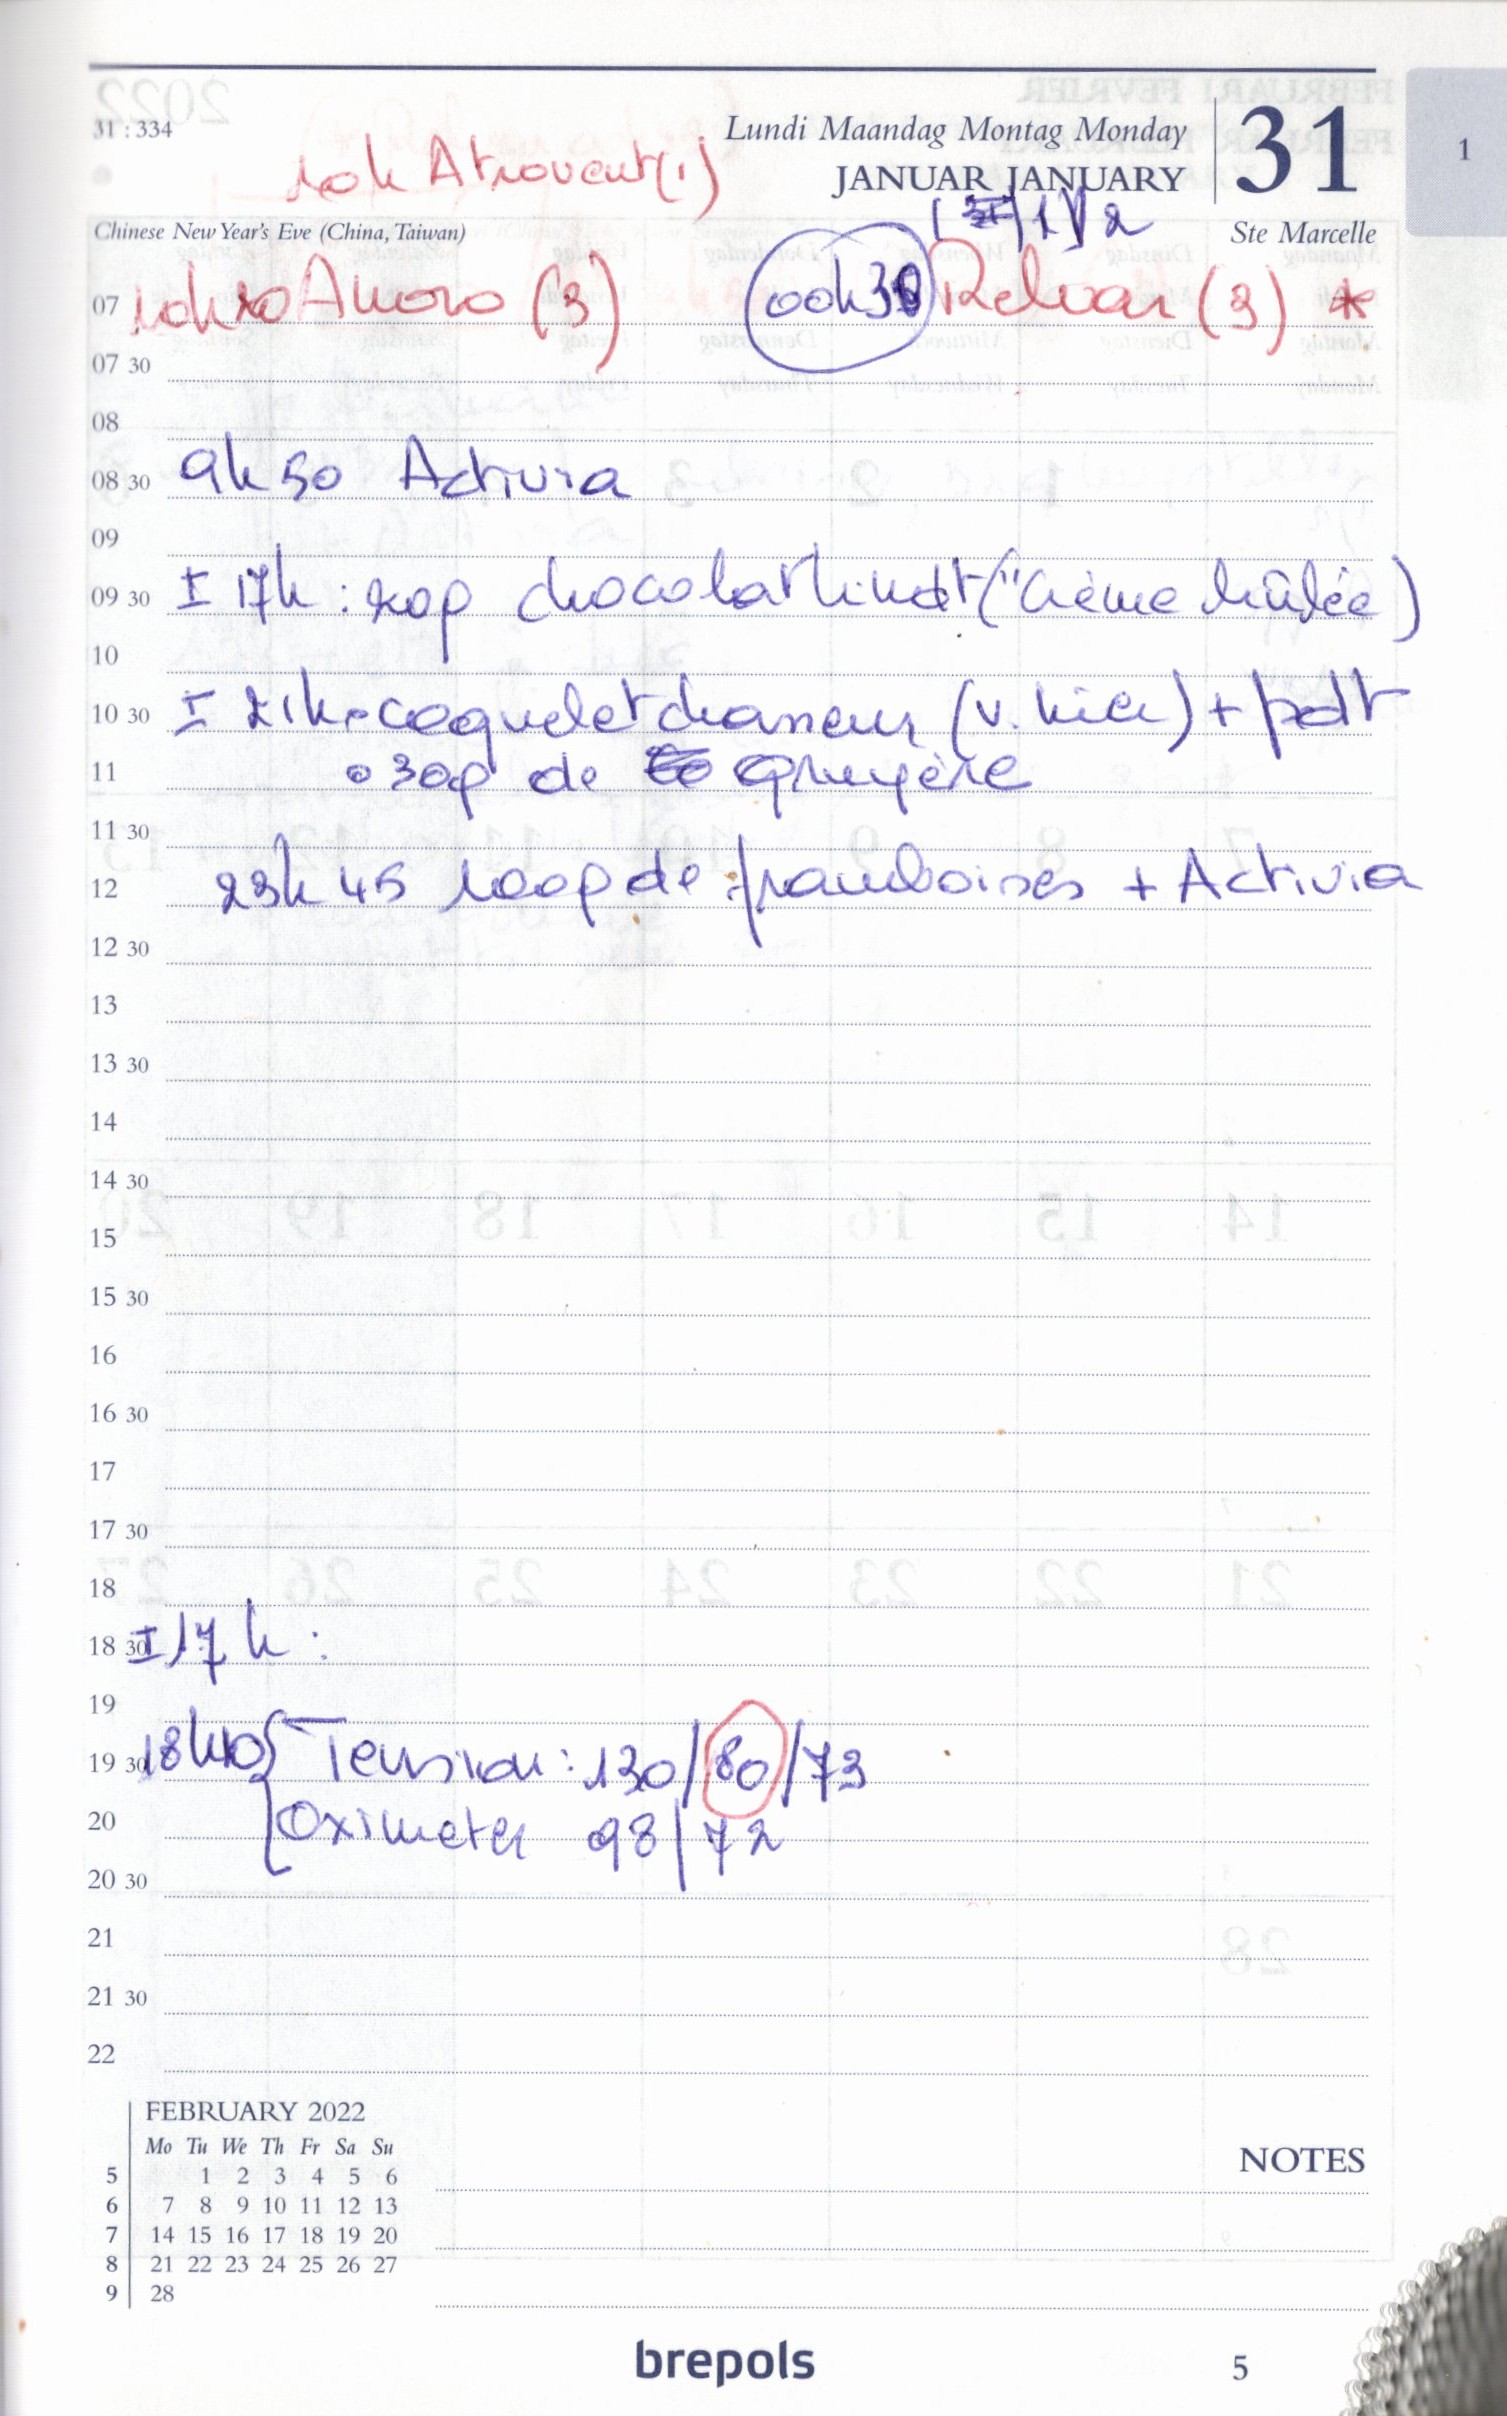 31 : 334
Lundi Maandag Montag Monday
31
1
10h Atrovent (1)
JANUAR JANUARY
1/2
Chinese New Year's Eve (China, Taiwan)
Ste Marcelle
07 10h20 Anoro (3) 00h30 Relvar (3) *
07 30
08
08 30 9h50 Activia
09
09 30 I 17h : 20g chocolat Lindt ("Crème brûlée)
10
10 30 I 21h • coquelet chasseur (v. hier) + pdt
11 • 30g de Gruyère
11 30
12 23h45 100g de framboises + Activia
12 30
13
13 30
14
14 30
15
15 30
16
16 30
17
17 30
18
18 30 I 17h :
19
19 30 18h40 Tension : 130/80/73
20 Oximeter 98/72
20 30
21
21 30
22
FEBRUARY 2022
Mo Tu We Th Fr Sa Su
NOTES
5 1 2 3 4 5 6
6 7 8 9 10 11 12 13
7 14 15 16 17 18 19 20
8 21 22 23 24 25 26 27
9 28
brepols
5